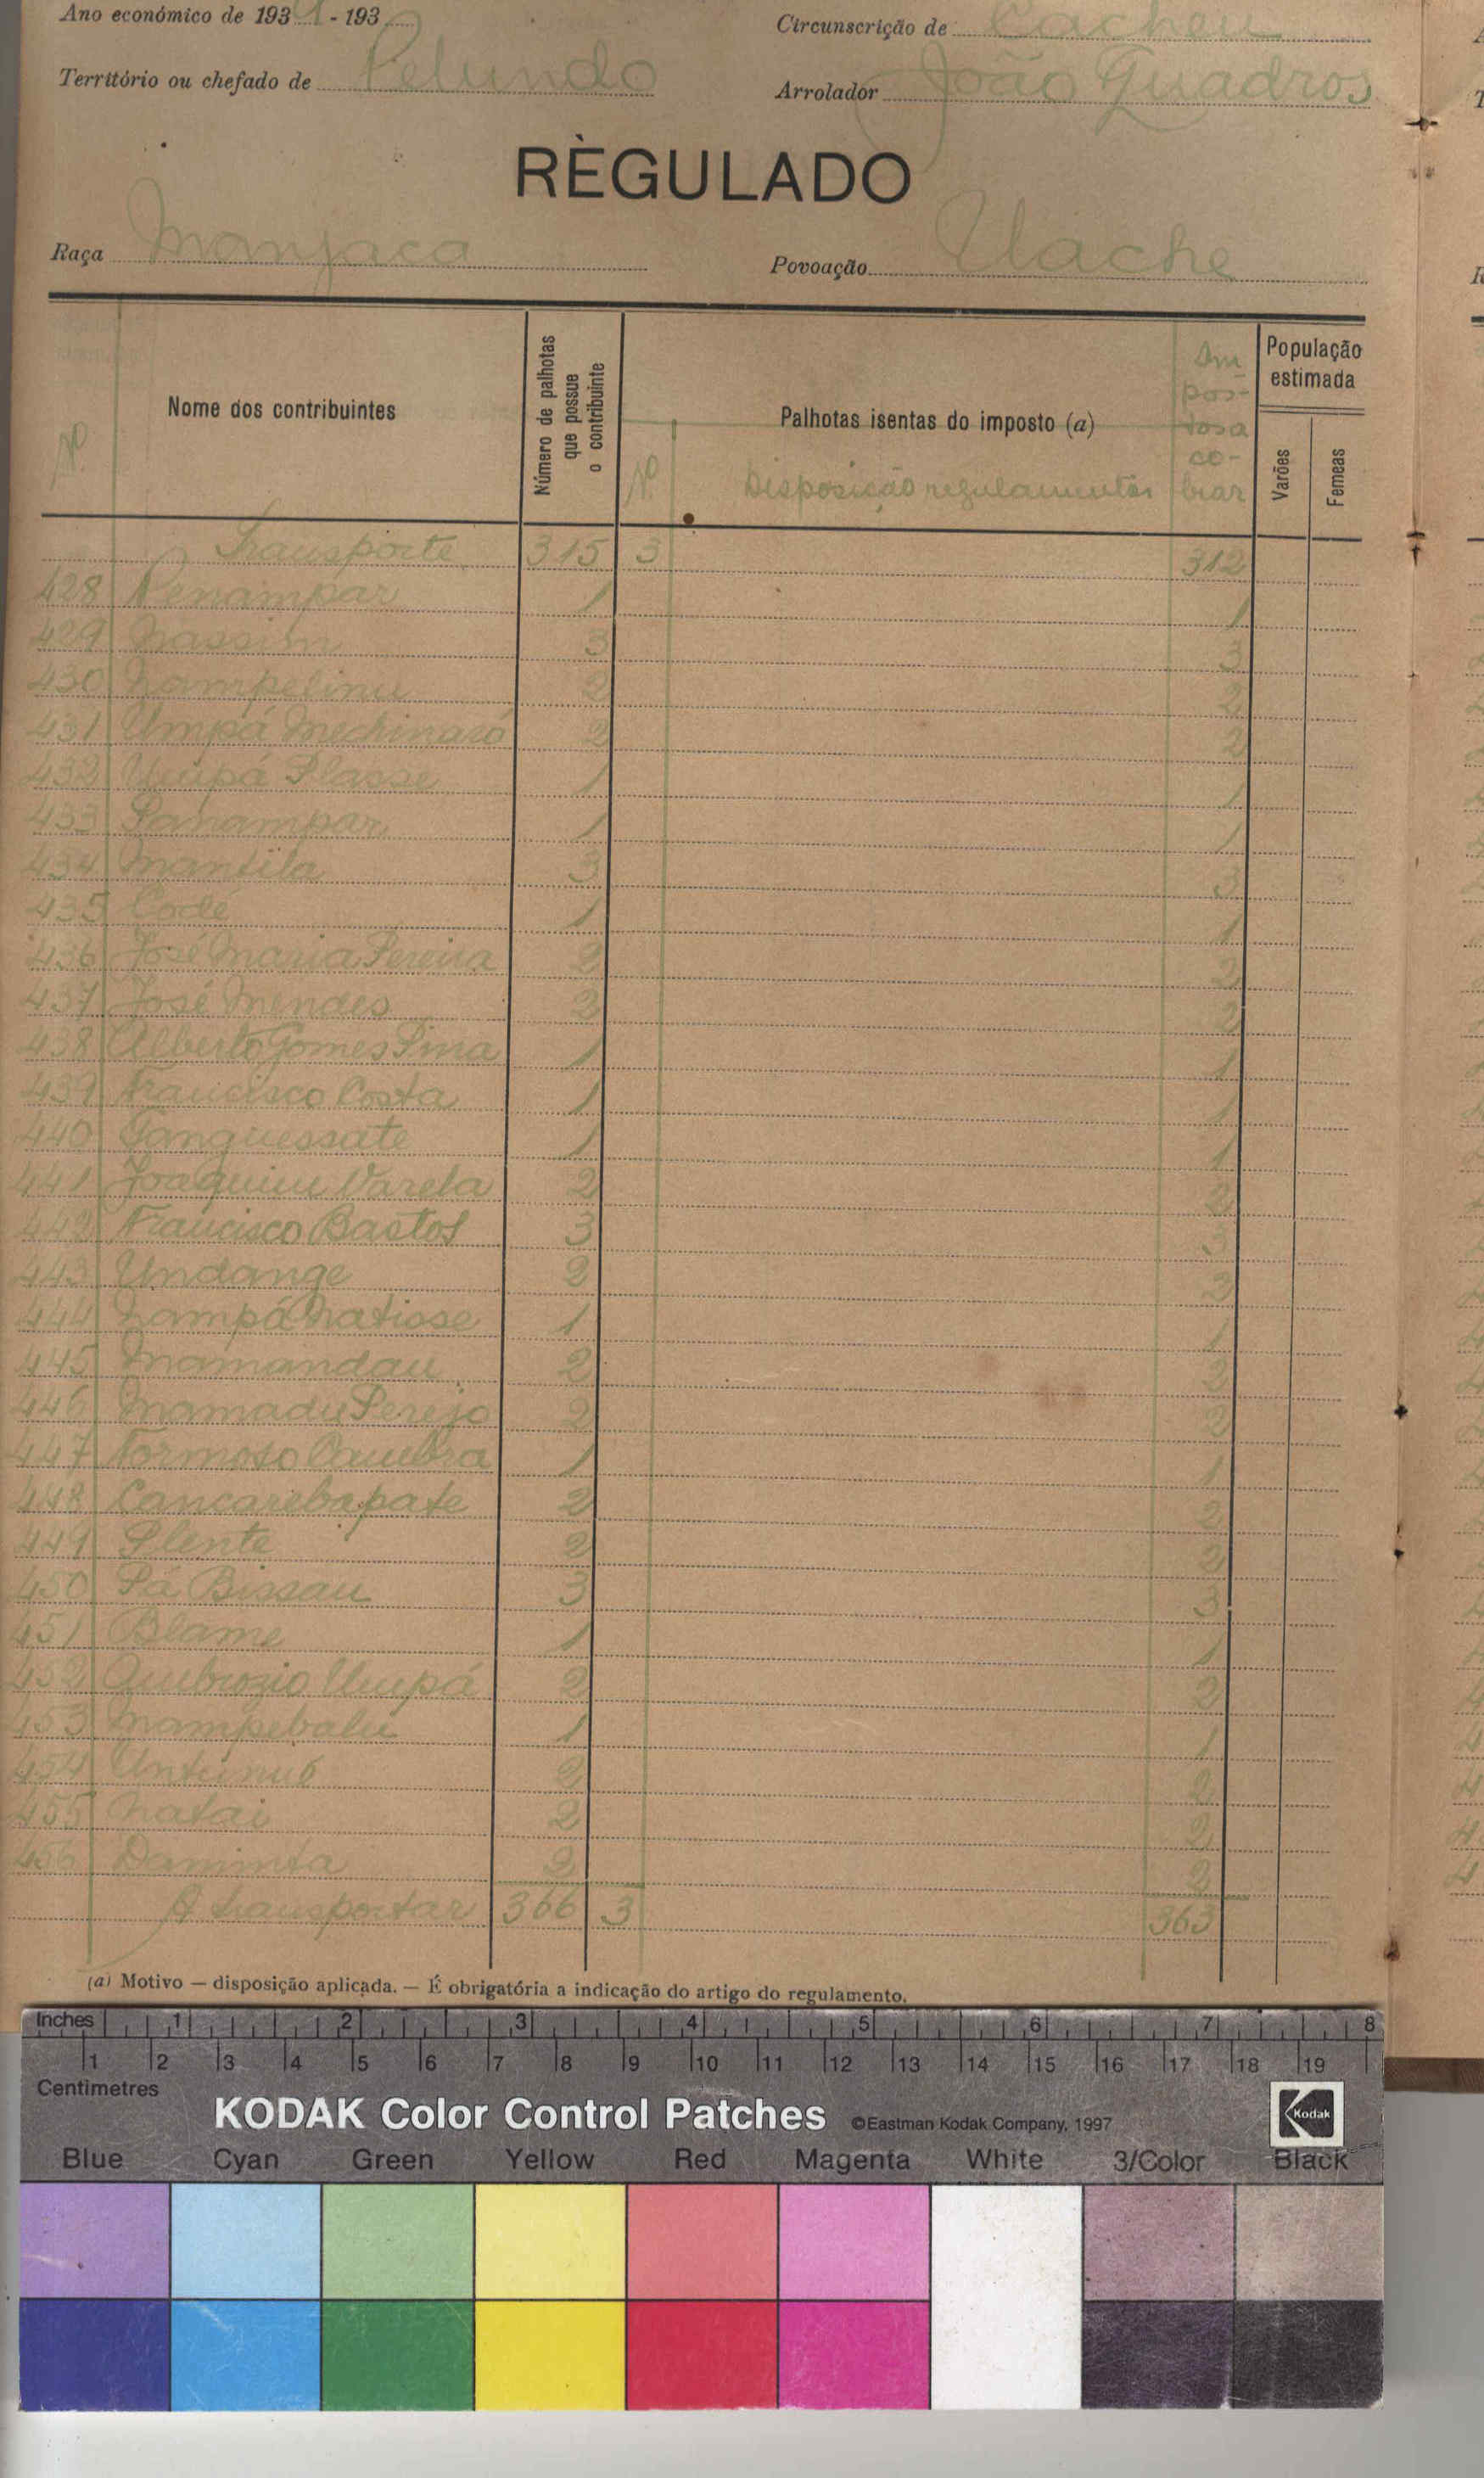 Ano económico de 1931 - 193
Circunscrição de Cacheu
Território ou chefado de Pelundo
Arrolador João Quadros
RÈGULADO
Raça Manjaca
Povoação
Nº
Nome dos contribuintes
Número de palhotas que possue o contribuinte
Nº
Palhotas isentas do imposto (a)
Disposição regulamentar
Im
pos-
tos a
co-
brar
População estimada
Varões
Femeas
Transporte 315 3 312
428 Penampar 1 1
429 Nassim 3 3
430 2 2
431 Umpá 2 2
432 Umpá Plasse 1 1
433 1 1
434 Mantila 3 3
435 Codé 1 1
436 José Maria Pereira 2 2
437 José Mendes 2 2
438 Alberto Gomes Pina 1 1
439 Francisco Costa 1 1
440 1 1
441 Joaquim Varela 2 2
442 Francisco Bastos 3 3
443 Undange 2 2
444 1 1
445 Mamandau 2 2
446 Mamadu 2 2
447 Formoso 1 1
448 2 2
449 Plente 2 2
450 Pá Bissau 3 3
451 Blame 1 1
452 Ambrozio Umpá 2 2
453 Mampebalu 1 1
454 2 2
455 Natai 2 2
456 Daminta 2 2
A transportar 366 3 363
(a) Motivo — disposição aplicada. — É obrigatória a indicação do artigo do regulamento.
Inches 1 2 3 4 5 6 7 8
1 2 3 4 5 6 7 8 9 10 11 12 13 14 15 16 17 18 19
Centimetres
KODAK Color Control Patches ©Eastman Kodak Company, 1997 Kodak
Blue Cyan Green Yellow Red Magenta White 3/Color Black